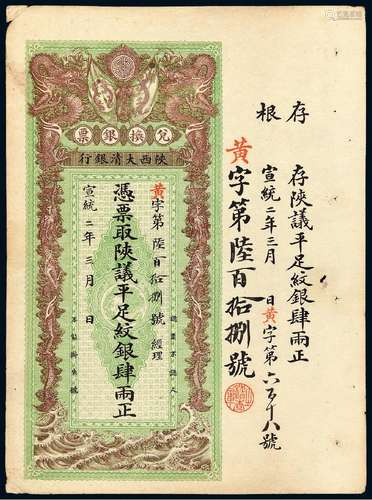 存根
存陝議平足紋銀肆兩正
宣統二年三月 日黃字第六百十八號
黃字第陸百拾捌號
兌換銀票
陝西大清銀行
黃字第陸百拾捌號 經理
憑票取陝議平足紋銀肆兩正
宣統二年三月 日